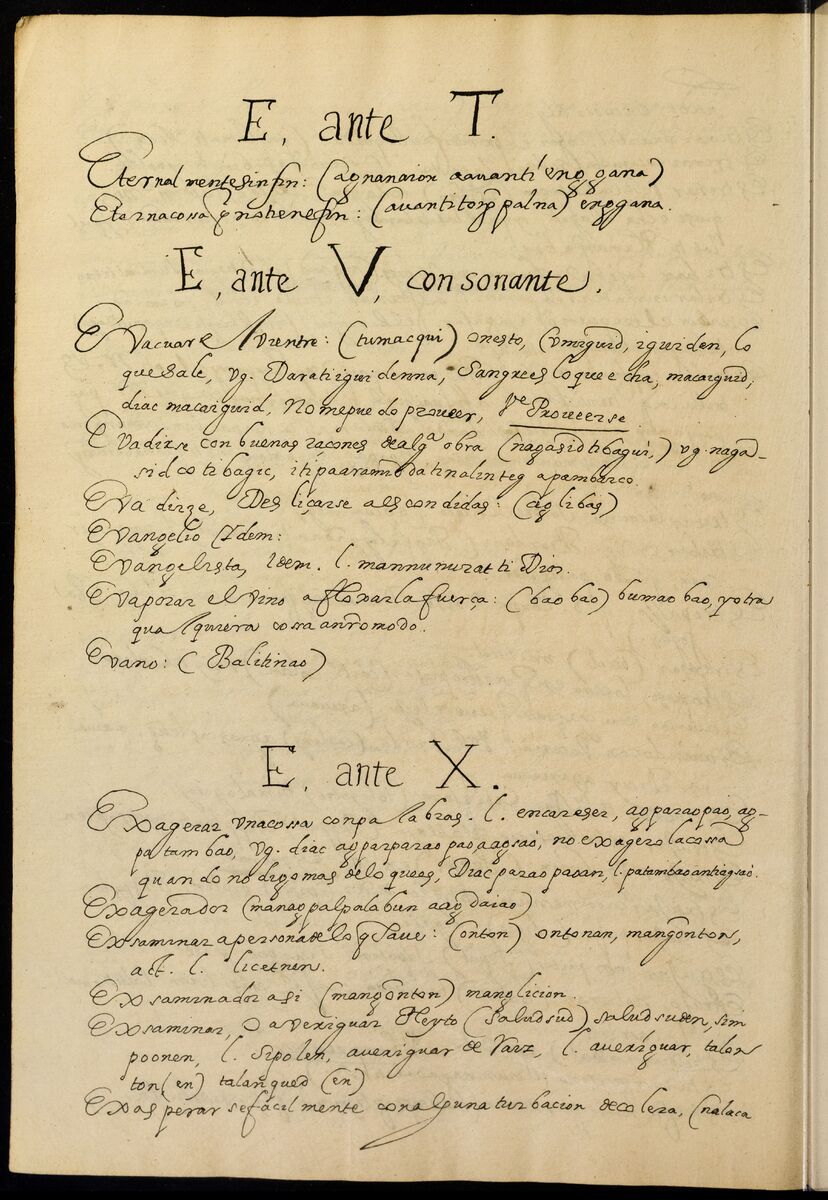 E, ante T.
Eternalmentesinfin: (agnanaion aavanti enggana)
Eternacossa q̃ notienefin: (avantitorg̃palna) enggana.
E, ante V, consonante.
Evacuar el vientre: (tumacqui) onesto, (vmiguid, iguiden, lo
quesale, vg. Daratiiguidenna, Sangrees loque echa, macaiguid,
diac macaiguid, Nomepuedo proveer, Ve Proveerse
Evadirse con buenas raçones dealgª obra (nagasidtibagui,) vg. nagã-
sidcotibagic,
Evadirze, Desliçarse a escondidas: (aglibas)
Evangelio Idem:
Evangelista, Idem. l. mannunuratti Dios.
Evaporar el vino afloxarlafuerça: (baobao) bumaobao, yotra
qualquiera cossa anrõmodo.
Evano: (Balitinao)
E, ante X.
Exagerar vnacossa conpalabras. l. encareser, agparaopao, ag-
patambao, vg. diac agparparaopao,aagsao, no exagero lacossa
quando nodigomas deloquees, Diacparaopaoan, l. patambaoantiagsao.
Exagerador (managpalpalabun aagdaiao)
Exsaminar apersona delo q̃ save: (onton) ontonan, mangonton,
act. l. licetnen.
Exsaminador asi (mangonton) manglicion.
Exsaminar, O averiguar Pleyto (Saludsud) saludsuden, sim
poonen, l. sipolen, averiguar de Raiz, l. averiguar, talon
ton(en) talanqued (en)
Exasperar sefácilmente conalguna turbacion decolera, (nalaca